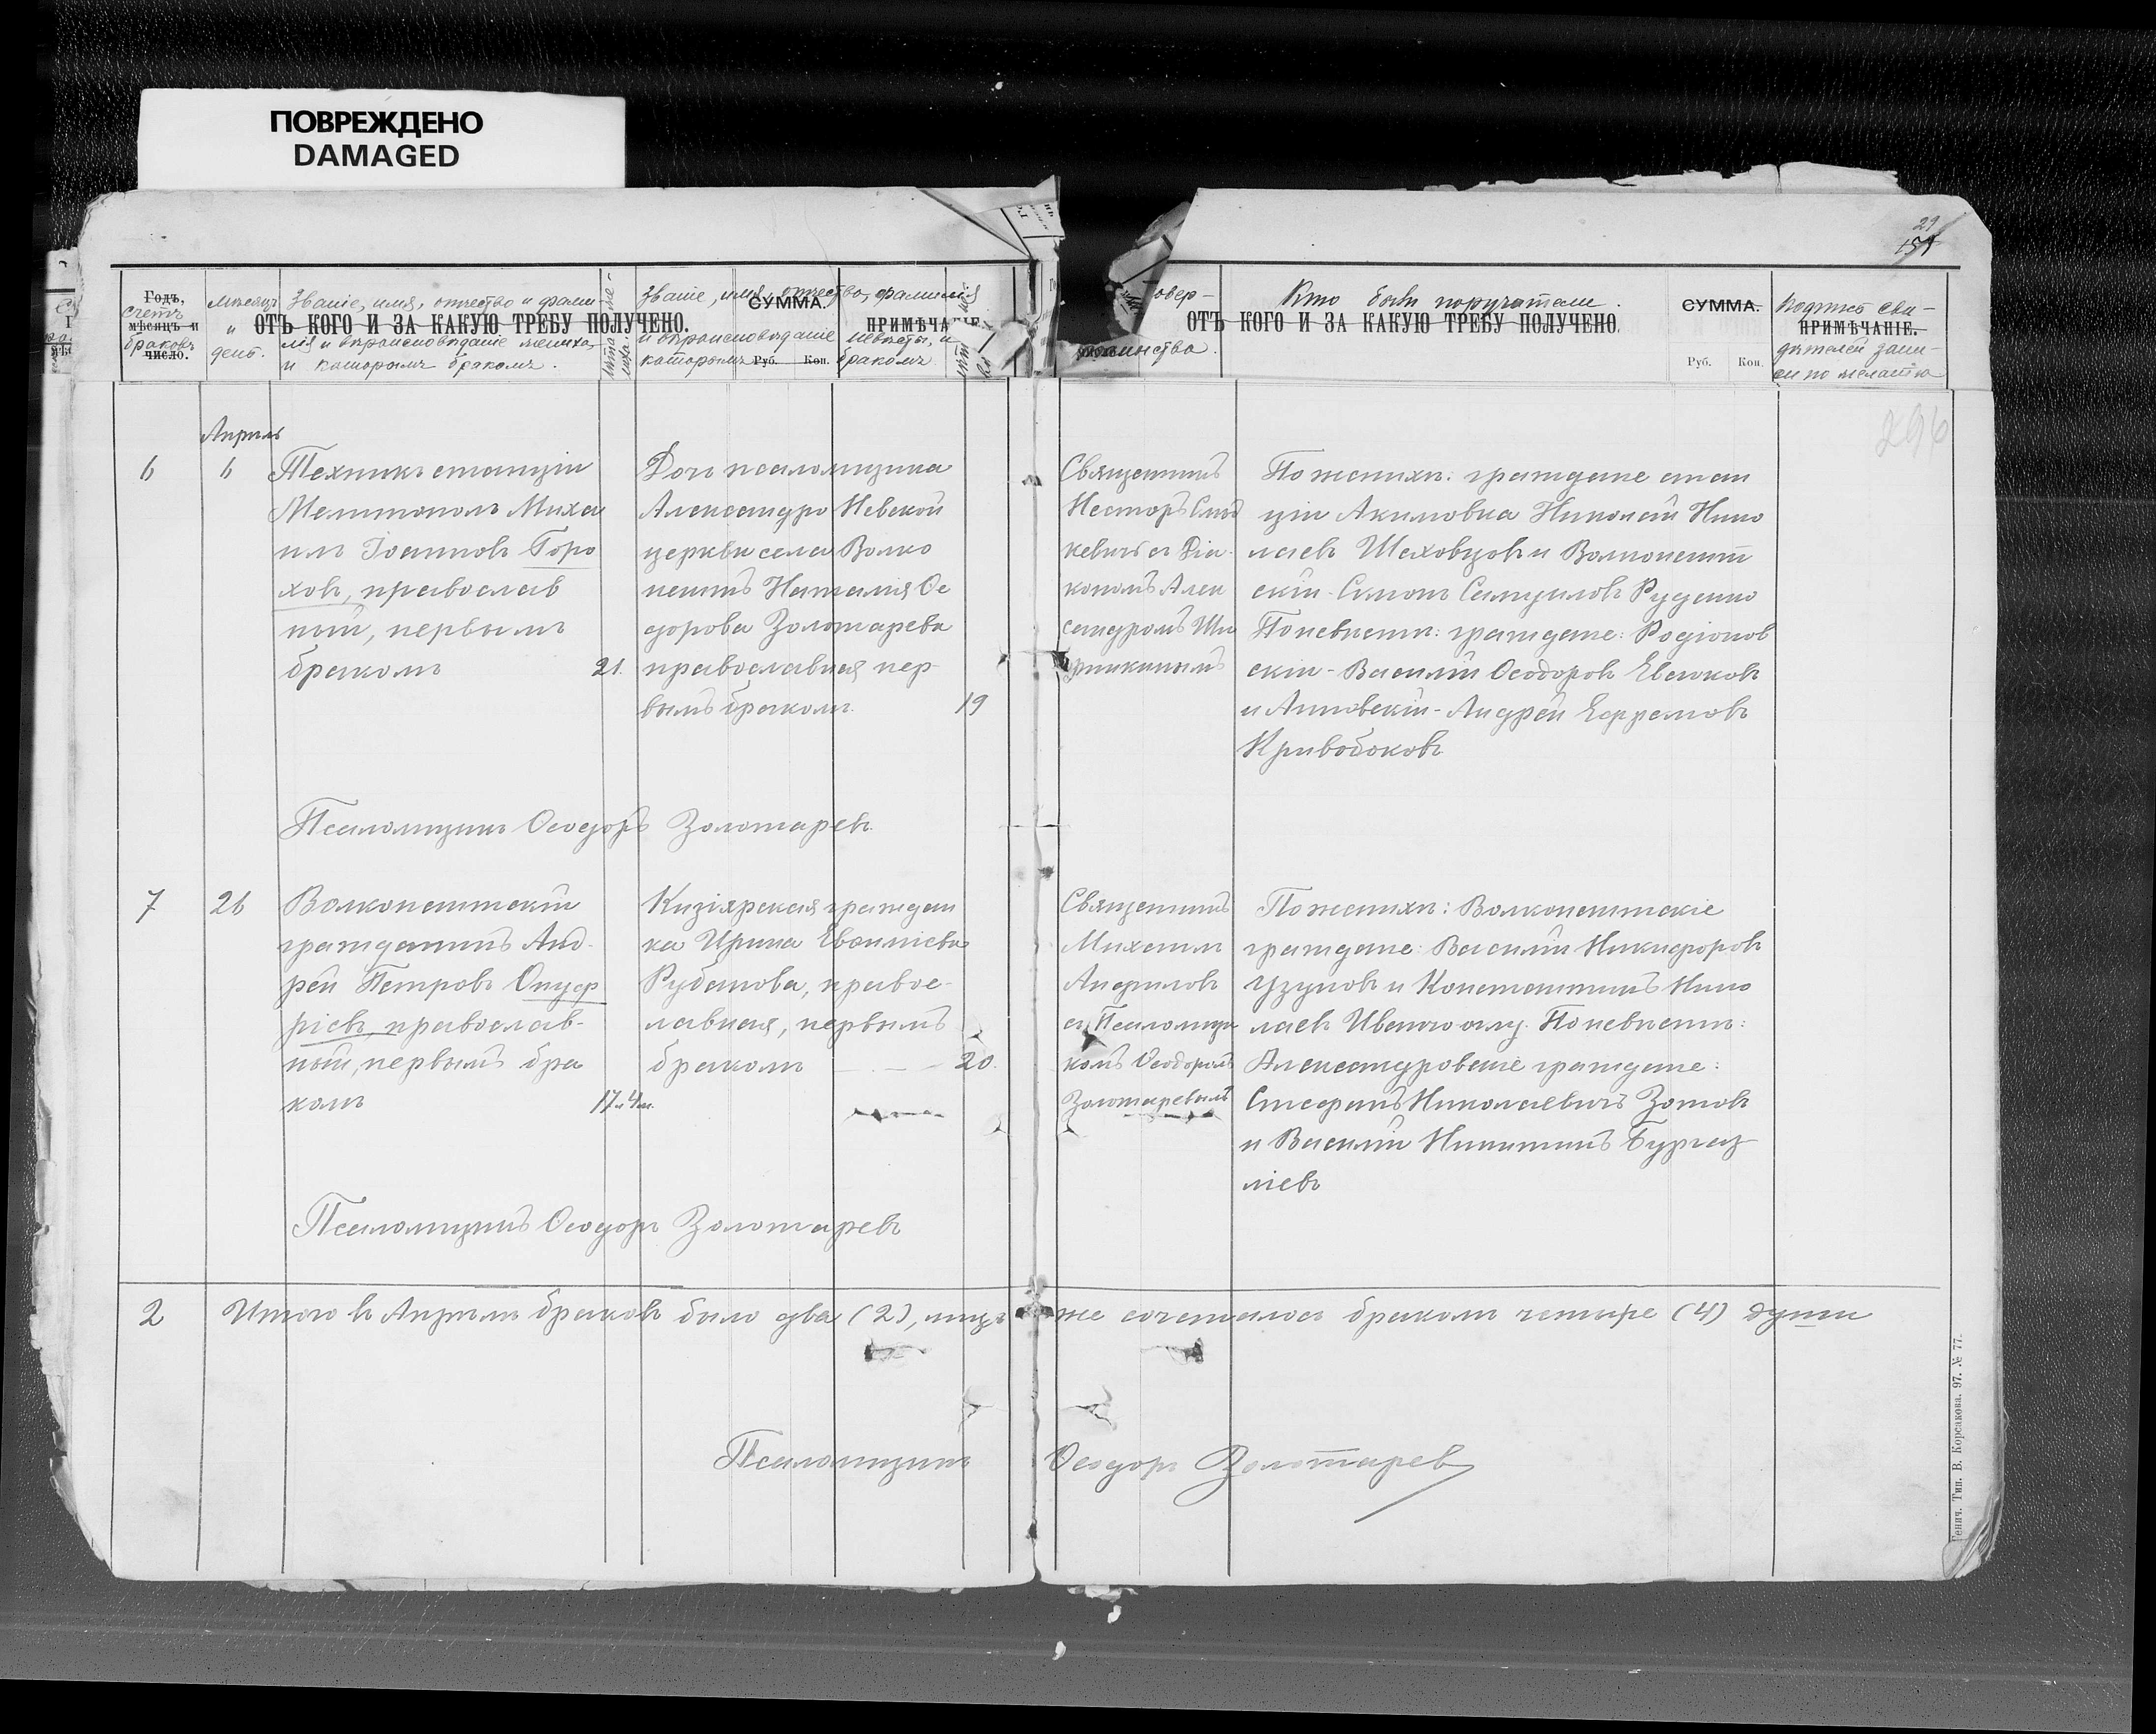 ПОВРЕЖДЕНО
DAMAGED
29
151
Годъ,
мѣсяцъ и
число.
Счетъ
браковъ
Мѣсяцъ
и
день.
Званіе, имя, отчество и фами
лія и вѣроисповѣданіе жениха,
и которымъ бракомъ.
ОТЪ КОГО И ЗА КАКУЮ ТРЕБУ ПОЛУЧЕНО.
Званіе, имя, отчество, фамилія
и вѣроисповѣданіе невѣсты, и
которымъ бракомъ
СУММА.
Руб. Коп.
ПРИМѢЧАНІЕ.
овер-
таинства.
Кто были поручители.
ОТЪ КОГО И ЗА КАКУЮ ТРЕБУ ПОЛУЧЕНО.
СУММА.
Руб. Коп.
Подпись сви-
дѣтелей запи-
си по желанію
ПРИМѢЧАНІЕ.
296
Апрѣль
6
6
Техникъ станціи
Мелитополь Миха
илъ Іоанновъ Горо
ховъ, православ
ный, первымъ
бракомъ
21.
Дочь псаломщика
Александро Невской
церкви села Волко
нештъ Наталія Ѳе
дорова Золотарева
православная пер-
вымъ бракомъ.
19
Священникъ
Несторъ
кевичъ съ Діа-
кономъ Алек
сандромъ
По женихѣ: граждане стан
ціи Акимовка Николай Нико
лаевъ Шаховцовъ и Волконешт
скій - Симонъ Самуиловъ Руденко
По невѣстѣ: граждане: Родіонов
скій - Василій Ѳеодоровъ Евсюковъ
и Анновскій - Андрей Ефремовъ
Кривобоковъ
Псаломщикъ Ѳеодоръ Золотаревъ.
7
26
Волконештскій
гражданинъ Анд-
рей Петровъ Онуф
ріевъ, православ-
ный, первымъ бра
комъ
17 л 4 м.
Кизіярская граждан
ка Ирина Евфиміева
Рубанова, правос-
лавная, первымъ
бракомъ
20.
Священникъ
Михаилъ
Андриловъ
съ Псаломщи
комъ Ѳеодоромъ
Золотаревымъ
По женихѣ: Волконештскіе
граждане: Василій Никифоровъ
Узуновъ и Константинъ Нико
лаевъ Иванчоглу. По невѣстѣ:
Александровскіе граждане:
Стефанъ Николаевичъ Зотовъ
и Василій Никитинъ Бургаз
ліевъ
Псаломщикъ Ѳеодоръ Золотаревъ
2
Итого въ Апрѣлѣ браковъ было два (2), лицъ же сочеталось бракомъ четыре (4) души
Псаломщикъ Ѳеодоръ Золотарев
Генич. Тип. В. Корсакова. 97. № 77.